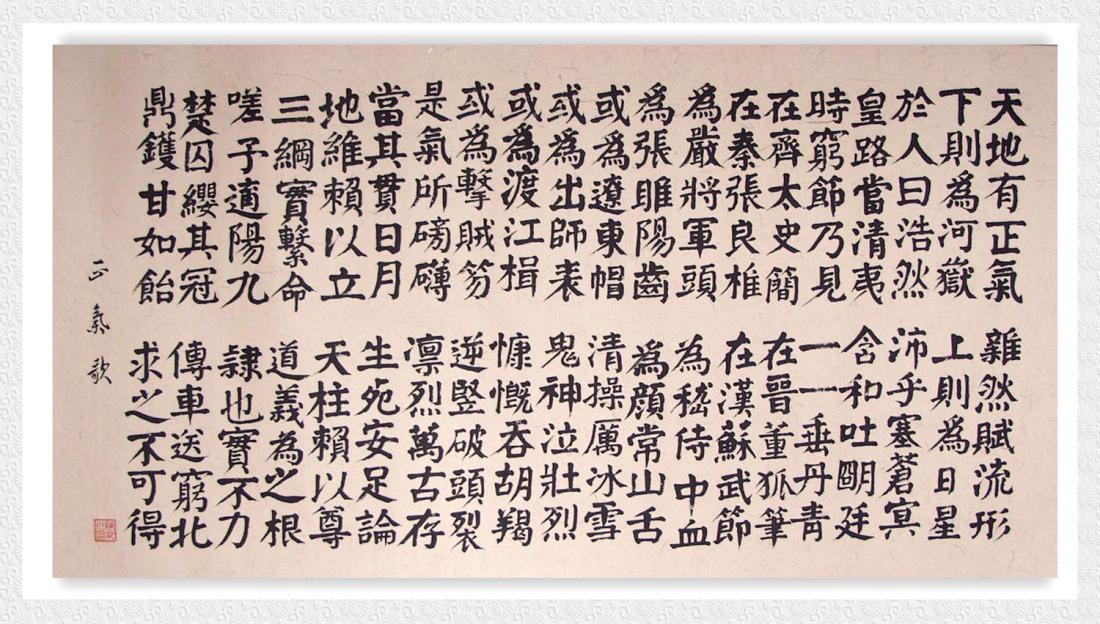 天地有正氣 雜然賦流形
下則為河嶽 上則為日星
於人曰浩然 沛乎塞蒼冥
皇路當清夷 含和吐朙廷
時窮節乃見 一一垂丹青
在齊太史簡 在晉董狐筆
在秦張良椎 在漢蘇武節
為嚴將軍頭 為嵇侍中血
為張睢陽齒 為顏常山舌
或為遼東帽 清操厲冰雪
或為出師表 鬼神泣壯烈
或為渡江楫 慷慨吞胡羯
或為擊賊笏 逆豎破頭裂
是氣所磅礡 凛烈萬古存
當其貫日月 生死安足論
地維賴以立 天柱賴以尊
三綱實繫命 道義為之根
嗟子適陽九 隸也實不力
楚囚纓其冠 傳車送窮北
鼎鑊甘如飴 求之不可得
正氣歌